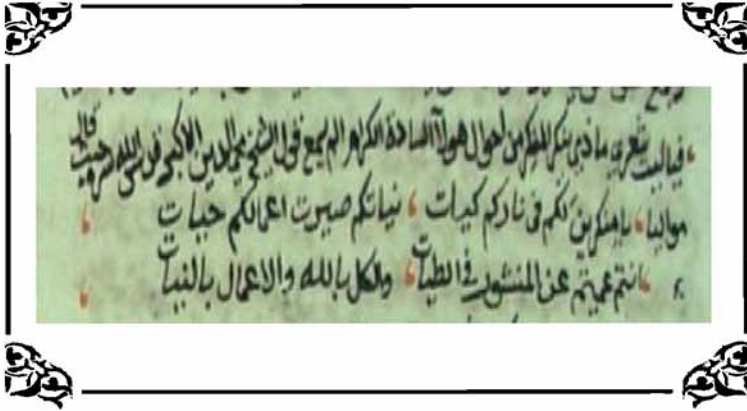 فياليت شعري ماذي ينكر المنكر من احوال هولآ السادة الكرام الم يسمع قول الشيخ محي الدين الاكبر قدس الله سره حيث قال
مواليا يا منكرين لكم في ناركم كيات نياتكم صيرت اعمالكم حيات
انتم عميتم عن المنشور في الطيات والكل بالله والاعمال بالنيات